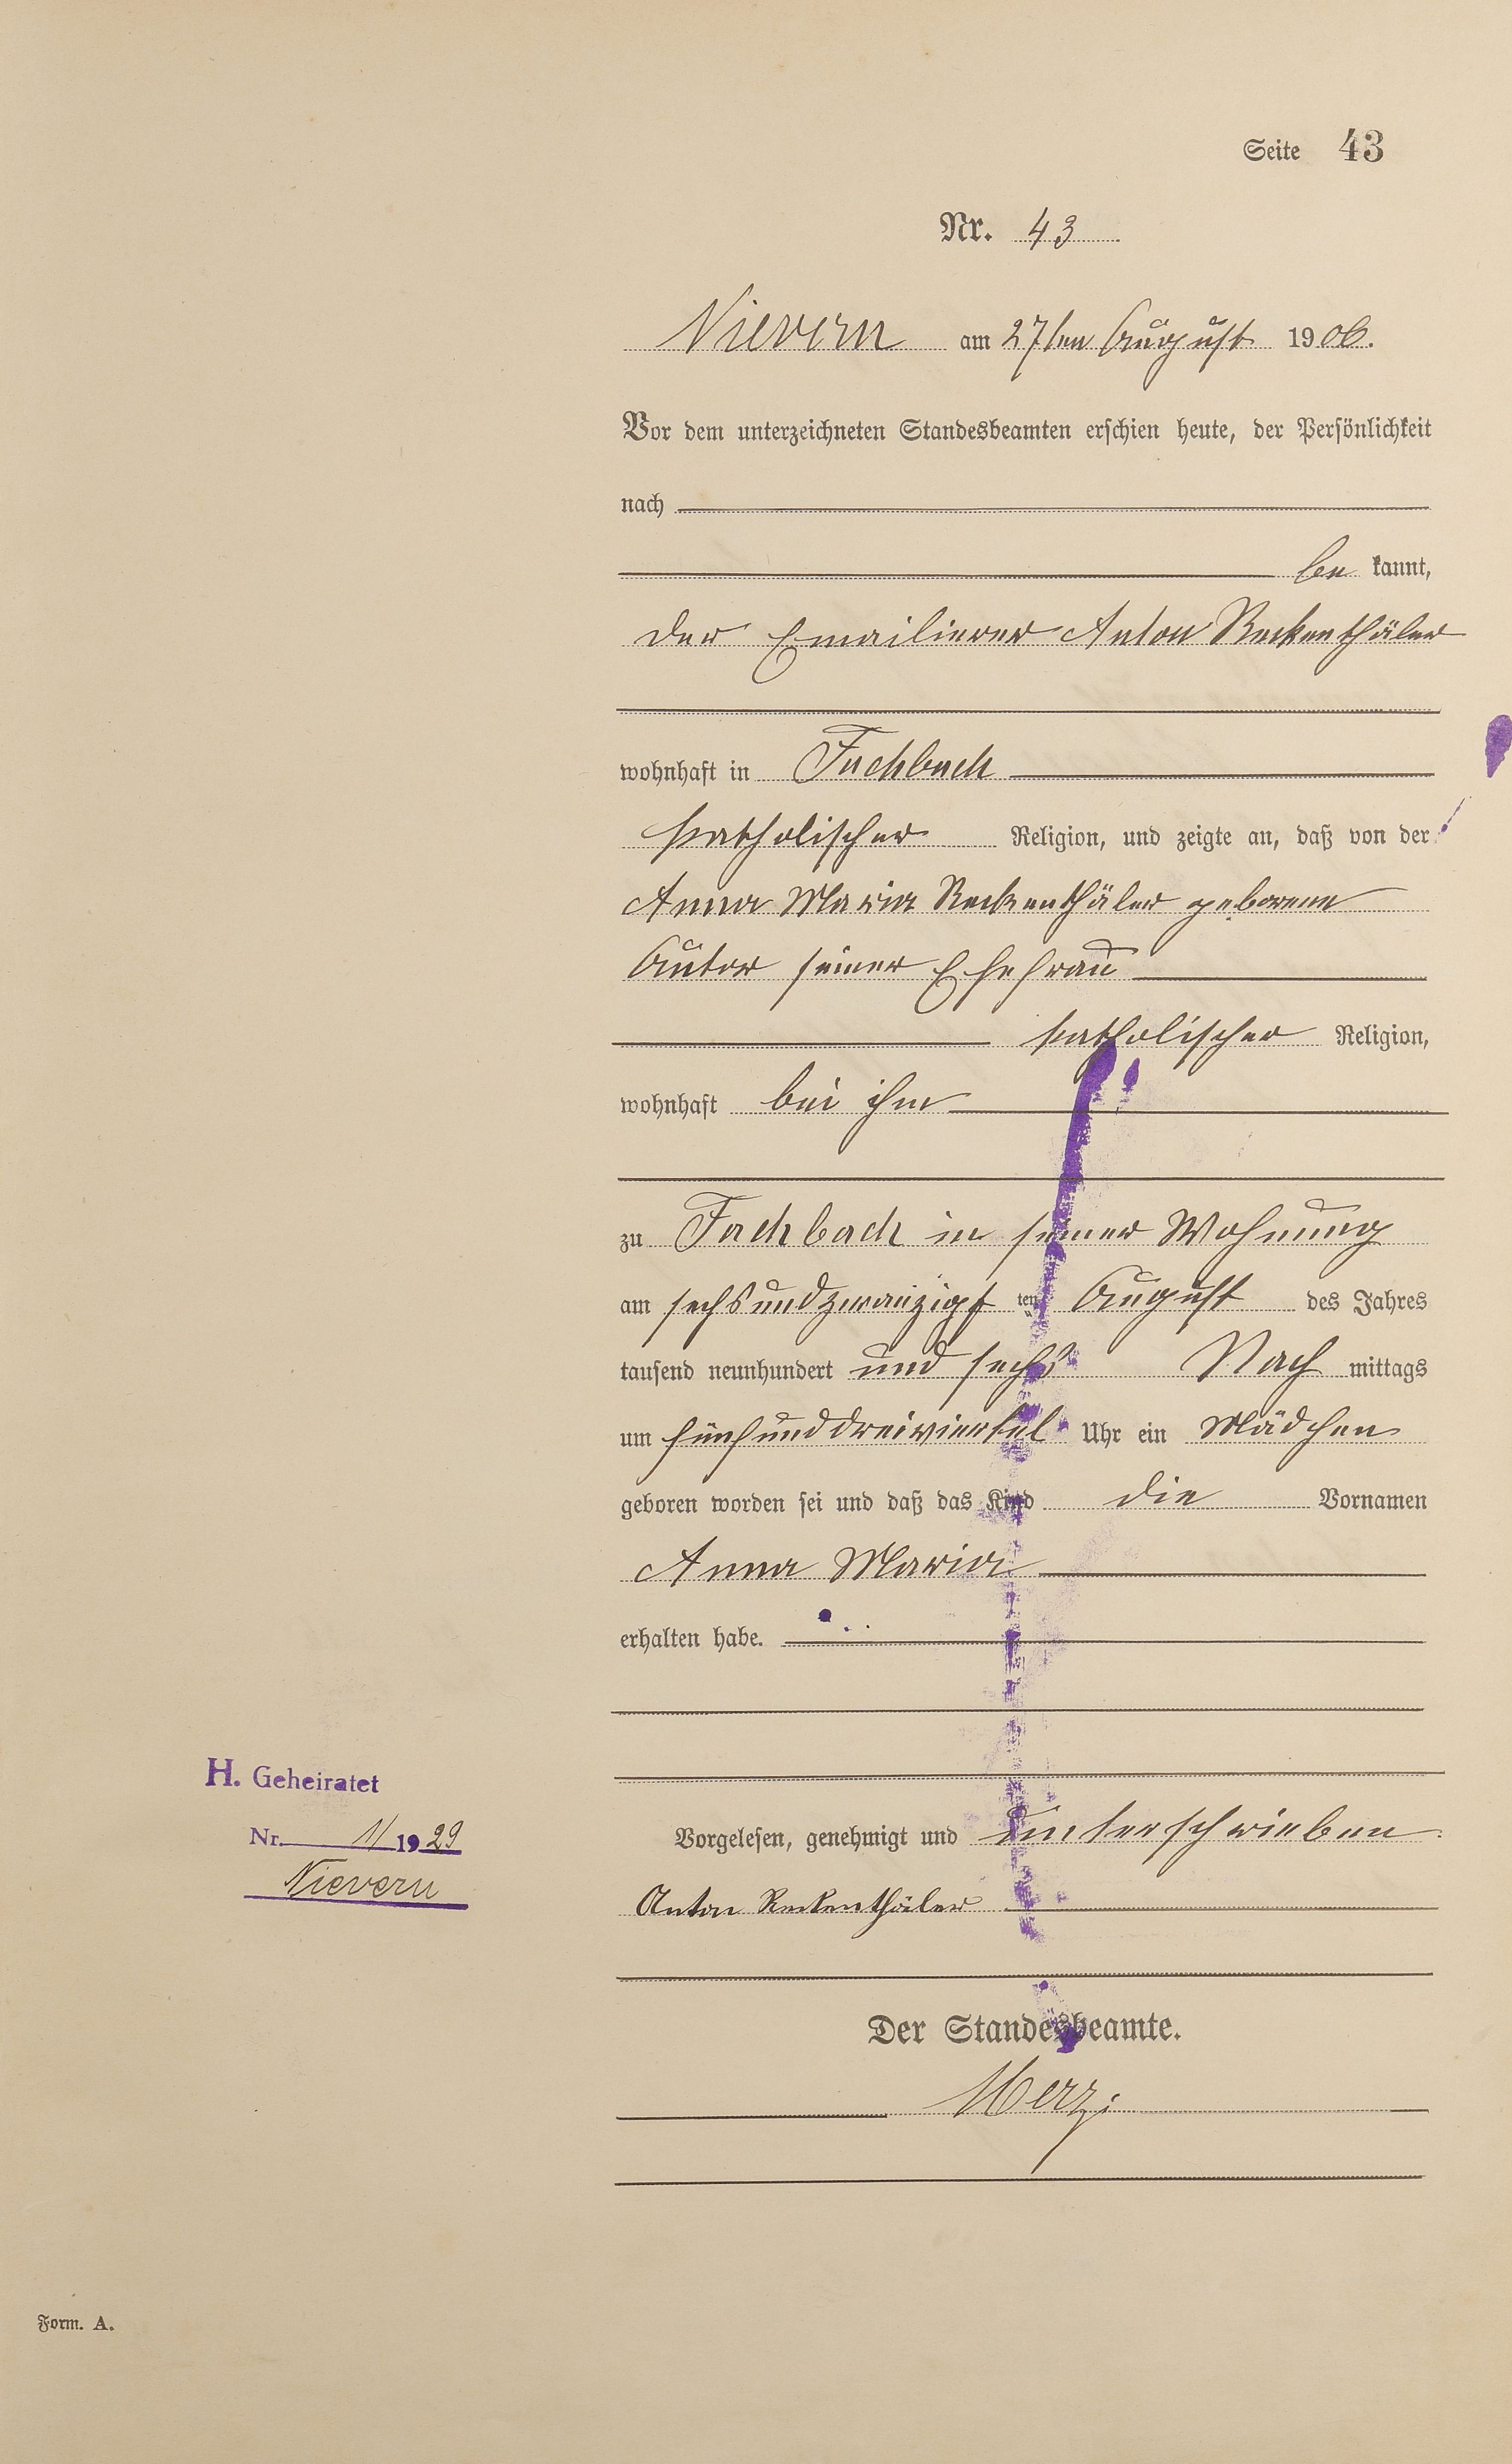 Seite 43
Nr. 43
Nievern am 27ten August 1906.
Vor dem unterzeichneten Standesbeamten erschien heute, der Persönlichkeit
nach
be kannt,
der Emailierer Anton Reckenthäler
wohnhaft in Fachbach
katholischer Religion, und zeigte an, daß von der
Anna Maria Reckenthäler geborene
Autor seiner Ehefrau
katholischer Religion,
wohnhaft bei ihm
zu Fachbach in seiner Wohnung
am sechsundzwanzigsten August des Jahres
tausend neunhundert und sechs Nach mittags
um fünfunddreiviertel Uhr ein Mädchen
geboren worden sei und daß das Kind die Vornamen
Anna Maria
erhalten habe.
H. Geheiratet
Nr. 1/ 1929
Nievern
Vorgelesen, genehmigt und unterschrieben
Anton Reckenthäler
Der Standesbeamte.
Merz.
Form. A.